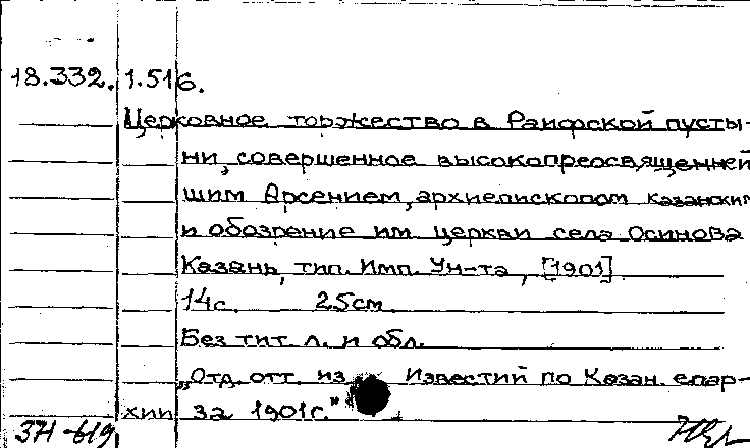 18.332. 1.516.
Церковное торжество в Раифской пусты-
ни, совершенное высокопреосвященней
шим Арсением, архиепископом казанским
и обозрение им церкви села Осинова
Казань, тип. Имп. Ун-та, [1901]
14с. 25см.
Без тит. л. и обл.
„Отд. отт. из Известий по Казан. епар-
хии за 1901г."